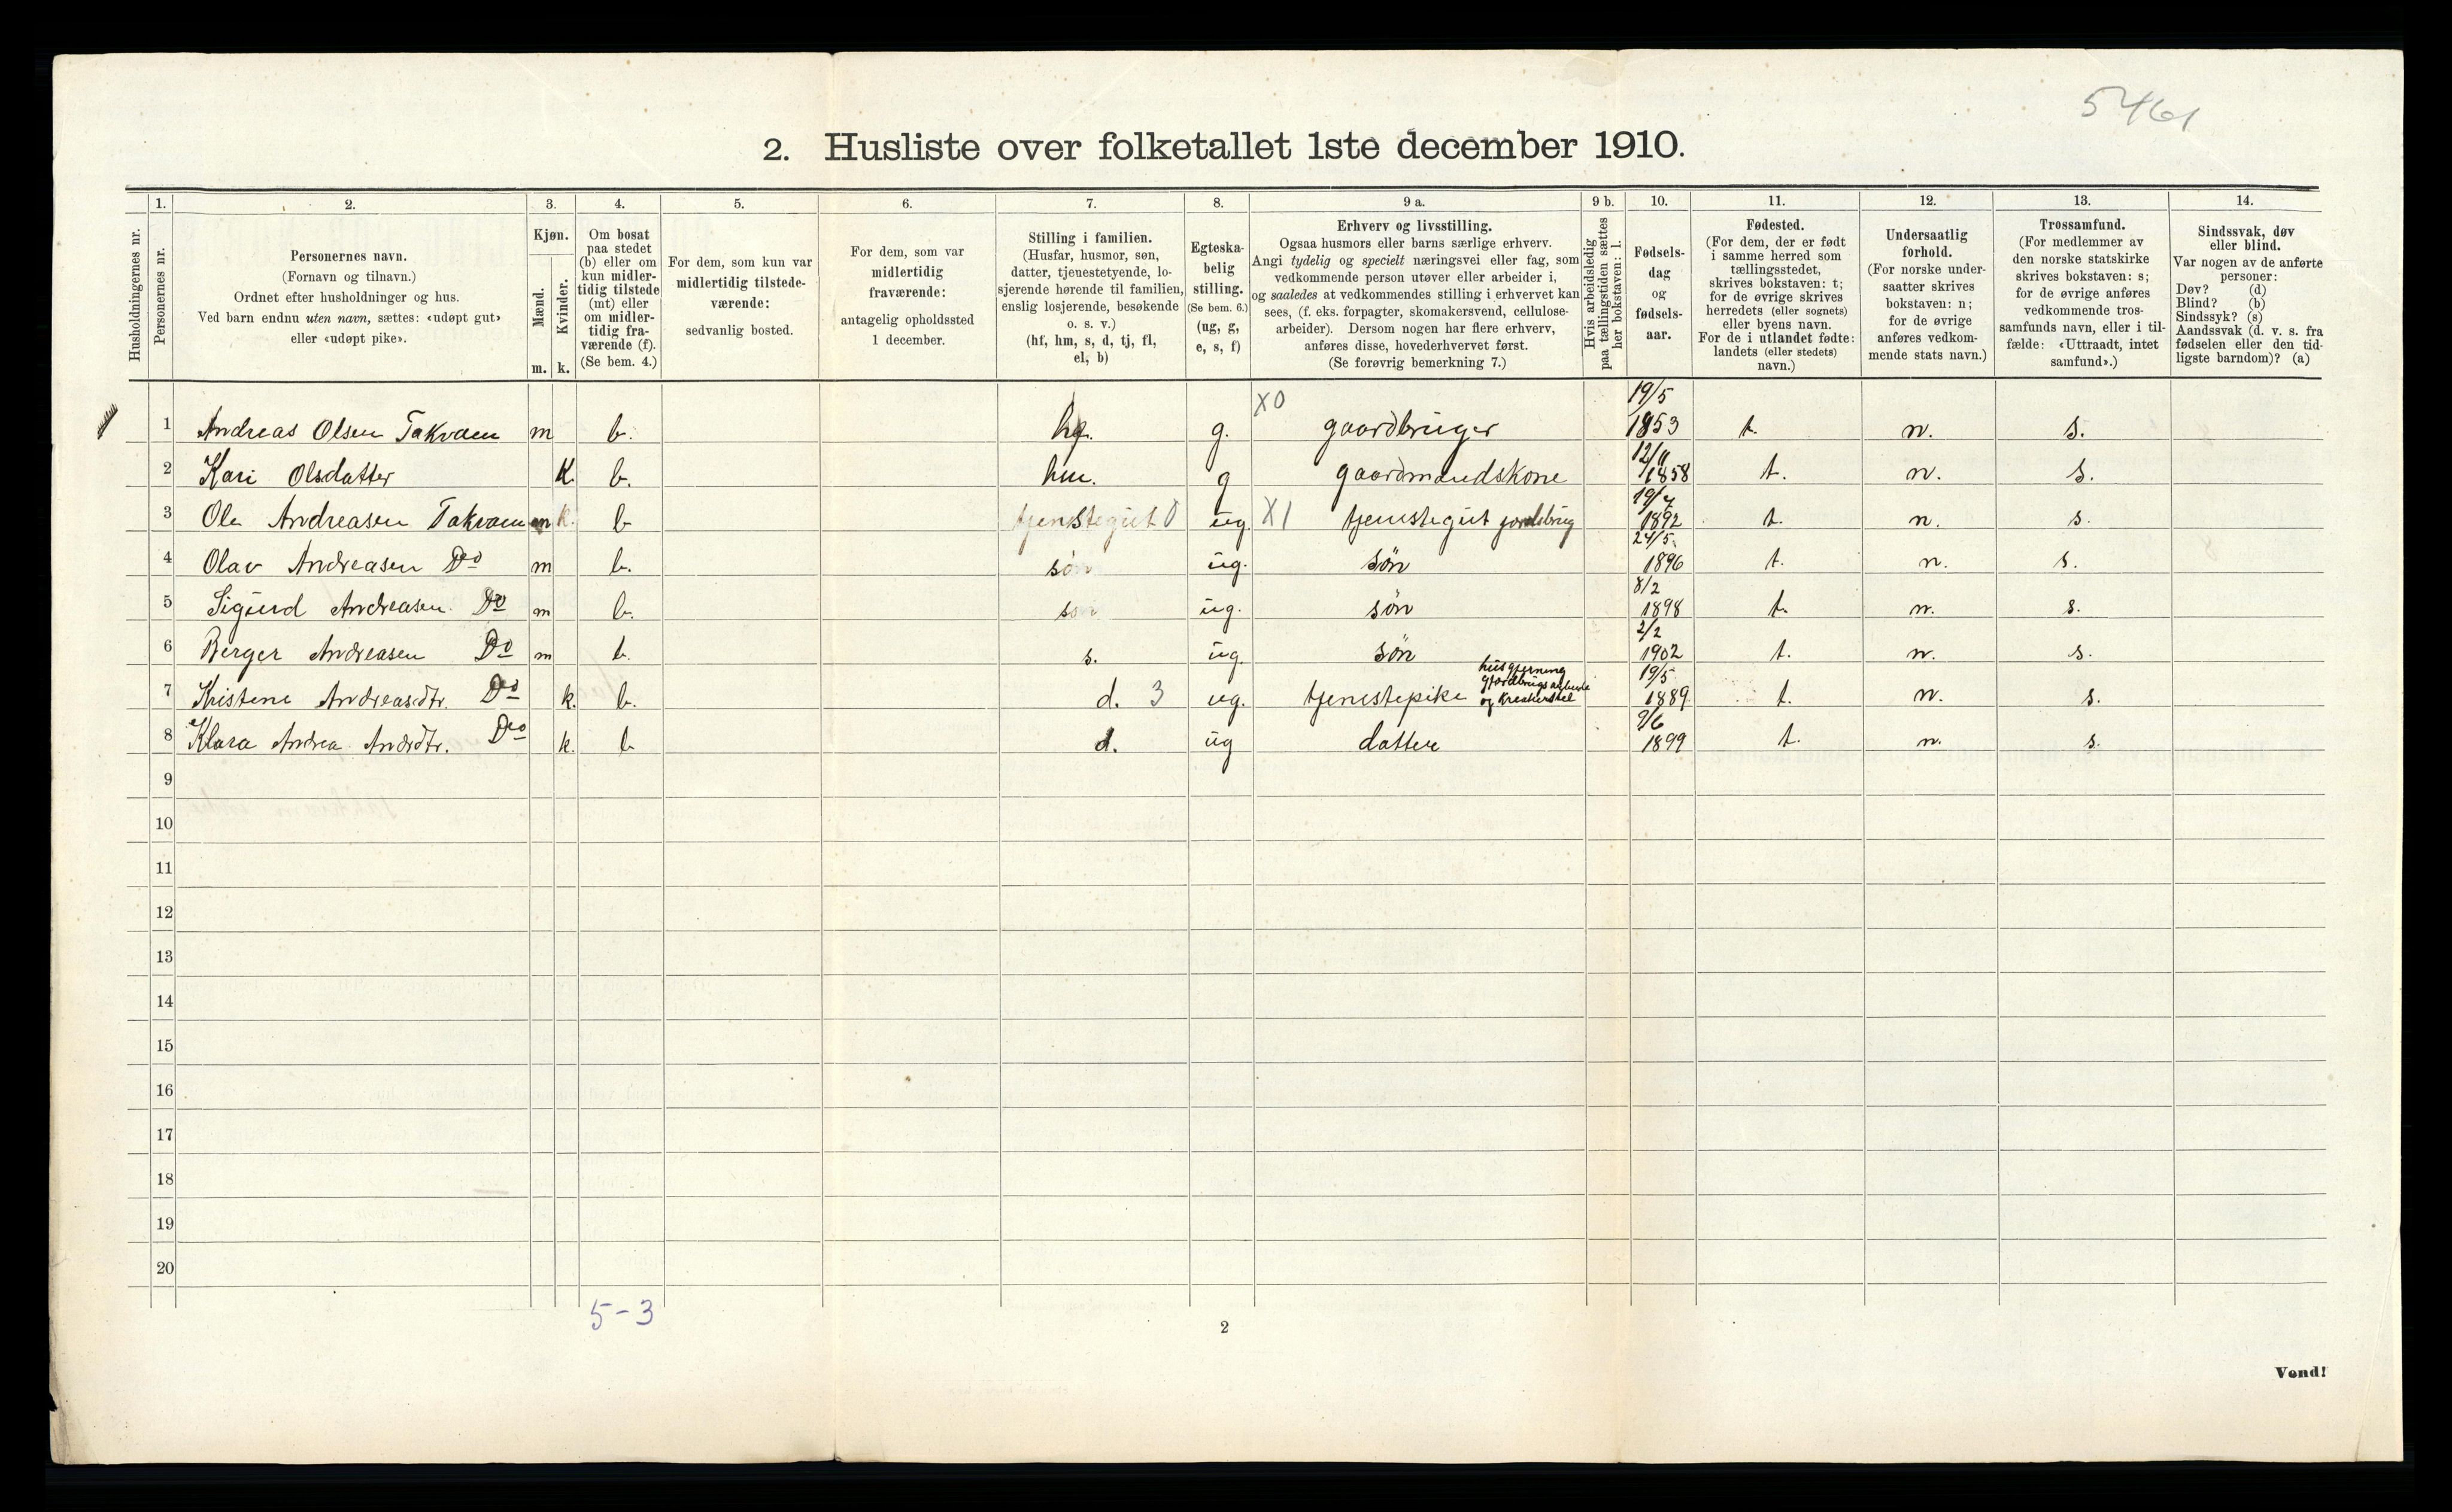 5461
2. Husliste over folketallet 1ste december 1910.
Husholdningernes nr.
1. Personernes nr.
2. Personernes navn.
(Fornavn og tilnavn.)
Ordnet efter husholdninger og hus.
Ved barn endnu uten navn, sættes: «udøpt gut»
eller «udøpt pike».
3. Kjøn.
Mænd. m.
Kvinder. k.
4. Om bosat
paa stedet
(b) eller om
kun midler-
tidig tilstede
(mt) eller
om midler-
tidig fra-
værende (f).
(Se bem. 4.)
5. For dem, som kun var
midlertidig tilstede-
værende:
sedvanlig bosted.
6. For dem, som var
midlertidig
fraværende:
antagelig opholdssted
1 december.
7. Stilling i familien.
(Husfar, husmor, søn,
datter, tjenestetyende, lo-
sjerende hørende til familien,
enslig losjerende, besøkende
o. s. v.)
(hf, hm, s, d, tj, fl,
el, b)
8. Egteska-
belig
stilling.
(Se bem. 6.)
(ug, g,
e, s, f)
9 a. Erhverv og livsstilling.
Ogsaa husmors eller barns særlige erhverv.
Angi tydelig og specielt næringsvei eller fag, som
vedkommende person utøver eller arbeider i,
og saaledes at vedkommendes stilling i erhvervet kan
sees, (f. eks. forpagter, skomakersvend, cellulose-
arbeider). Dersom nogen har flere erhverv,
anføres disse, hovederhvervet først.
(Se forøvrig bemerkning 7.)
9 b. Hvis arbeidsledig
paa tællingstiden sættes
her bokstaven: l.
10. Fødsels-
dag
og
fødsels-
aar.
11. Fødested.
(For dem, der er født
i samme herred som
tællingsstedet,
skrives bokstaven: t;
for de øvrige skrives
herredets (eller sognets)
eller byens navn.
For de i utlandet fødte:
landets (eller stedets)
navn.)
12. Undersaatlig
forhold.
(For norske under-
saatter skrives
bokstaven: n;
for de øvrige
anføres vedkom-
mende stats navn.)
13. Trossamfund.
(For medlemmer av
den norske statskirke
skrives bokstaven: s;
for de øvrige anføres
vedkommende tros-
samfunds navn, eller i til-
fælde: «Uttraadt, intet
samfund».)
14. Sindssvak, døv
eller blind.
Var nogen av de anførte
personer:
Døv? (d)
Blind? (b)
Sindssyk? (s)
Aandssvak (d. v. s. fra
fødselen eller den tid-
ligste barndom)? (a)
1 Andreas Olsen Takvam m b. hf. g. X0 gaardbruger 19/5 1853 t. n. s.
2 Kari Olsdatter K. b. hm. g gaardmandskone 12/11 1858 t. n. s.
3 Ole Andreasen Takvam m k. b tjenstegut 0 ug X1 tjenstegut jordbrug 19/7 1892 t. n. s.
4 Olav Andreasen Do m b. søn ug. søn 24/5 1896 t. n. s.
5 Sigurd Andreasen Do m b. søn ug. søn 8/2 1898 t. n. s.
6 Berger Andreasen Do m b. s. ug. søn 2/2 1902 t. n. s.
7 Kristene Andreasdtr. Do k. b. d. 3 ug. tjenestepike husgjerning og kreaturstel 19/5 1889 t. n. s.
8 Klara Andrea Andrdtr. Do k. b d. ug datter 9/6 1899 t. n. s.
9
10
11
12
13
14
15
16
17
18
19
20
5-3
2
Vend!